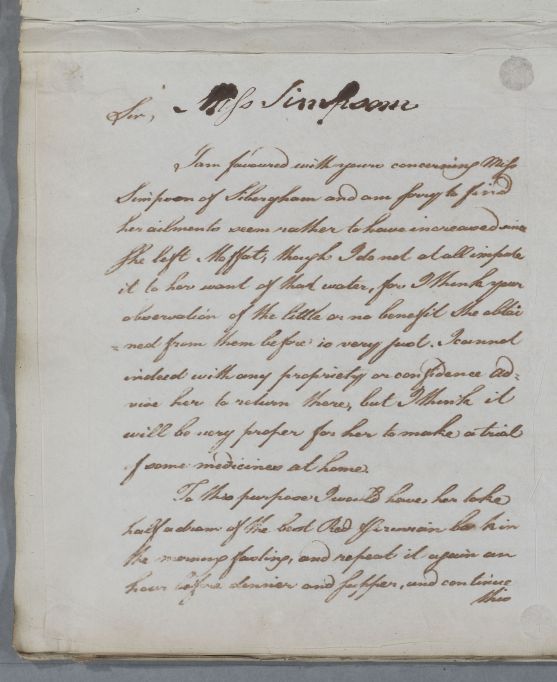 Miss Simpson
Sir,
I am favoured with yours concerning Miss
Simpson of Sibergham and am sorry to find
her ailments seem rather to have increased since
She left Moffat, though I do not at all impute
it to her want of that water, for I think your
observation of the little or no benefit She obtai
=ned from them before is very just. I cannot
indeed with any propriety or confidence ad=
vise her to return there, but I think it
will be very proper for her to make a trial
of some medicines at home.
To this purpose I would have her take
half a dram of the best Red Peruvian bark in
the morning fasting, and repeat it again an
hour before dinner and supper, and continue
this